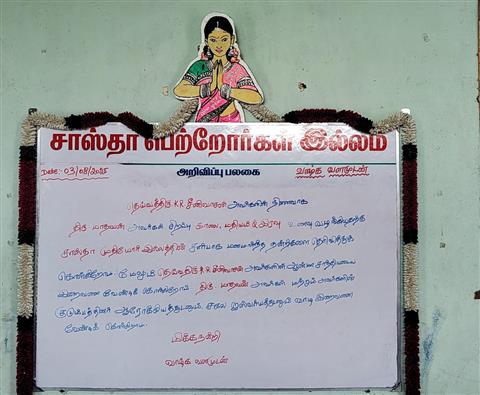 சாஸ்தா பெற்றோர்கள் இல்லம்
அறிவிப்பு பலகை
DATE: 03/08/2025
வாழ்க வளமுடன்
தெய்வத்திரு K.R சீனிவாசன் அவர்களின் நினைவாக
திரு மாதவன் அவர்கள் சிறப்பு காலை, மதியம் & இரவு உணவு வழங்கியதற்கு
சாஸ்தா முதியோர் இல்லத்தின் சார்பாக மனமார்ந்த நன்றிகளை தெரிவித்துக்
கொள்கிறோம் மேலும் தெய்வத்திரு K.R சீனிவாசன் அவர்களின் ஆன்மா சாந்தியடைய
இறைவனை வேண்டிக் கொள்கிறோம் திரு மாதவன் அவர்கள் மற்றும் அவர்களின்
குடும்பத்தினர் ஆரோக்கியத்துடனும், சகல ஐஸ்வர்யத்துடனும் வாழ இறைவனை
வேண்டிக் கொள்கிறோம்.
மிக்க நன்றி
வாழ்க வளமுடன்